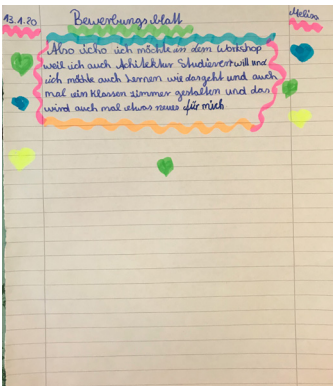 13.1.20 Bewerbungsblatt Melisa
Also icho ich möchte in dem Workshop
weil ich auch Achitektur Studieren will und
ich möchte auch kennen wie das geht und auch
mal ein Klassen zimmer gestalten und das
wird auch mal etwas neues für mich